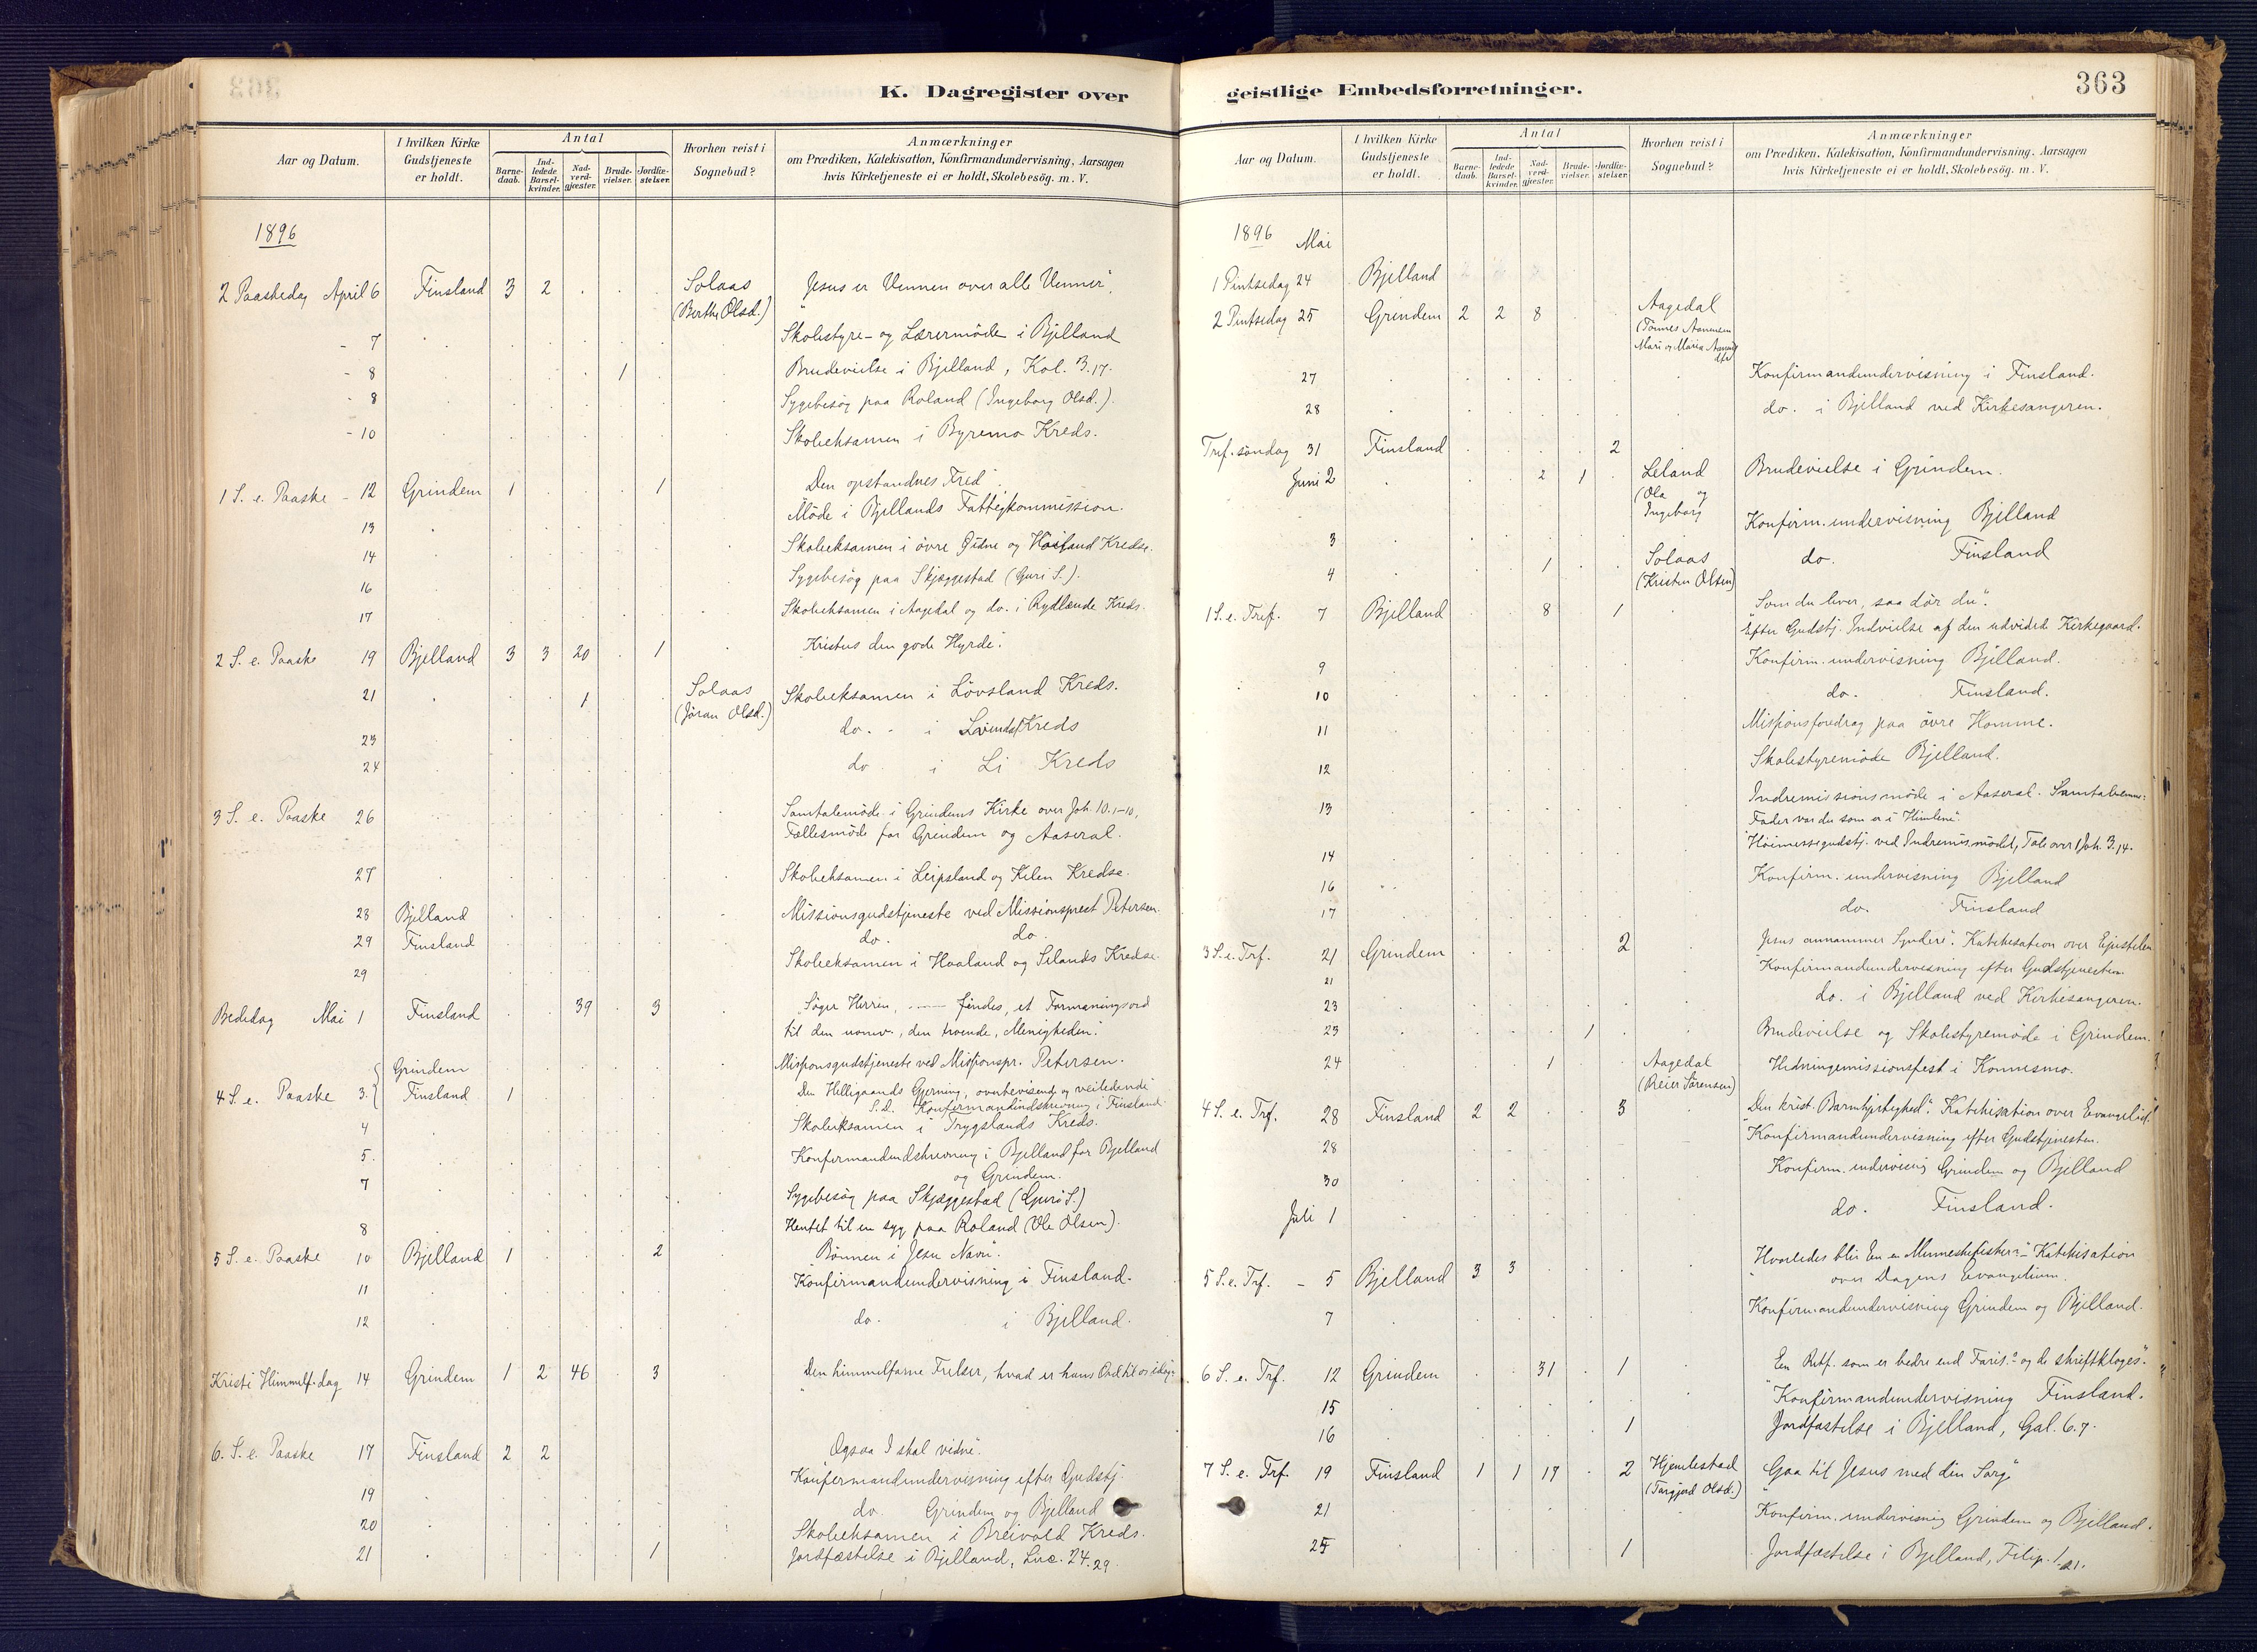 K. Dagregister over
Aar og Datum.
I hvilken Kirke Gudstjeneste er holdt.
Antal
Barne-daab.
Ind-ledede Barsel-kvinder.
Nad-verd-gjæster.
Brude-vielser.
Jordfæ-stelser.
Hvorhen reist i Sognebud?
Anmærkninger
om Prædiken, Katekisation, Konfirmandundervisning, Aarsagen
hvis Kirketjeneste ei er holdt, Skolebesög. m. V.
1896
2 Paaskedag April 6 Finsland 3 2 Solaas (Berthe Olsd.) "Jesus er Vennen over alle Venner".
- 7 Skolestyre- og Lærermöde i Bjelland
- 8 1 Brudevielse i Bjelland, Kol. 3.17.
- 8 Sygebesög paa Roland (Ingeborg Olsd.).
- 10 Skoleeksamen i Byremo Kreds.
1 S. e. Paaske - 12 Grindem 1 1 Den opstandnes Fred".
13 Möde i Bjellands Fattigkommission.
14 Skoleeksamen i övre Öidne og Kredse.
16 Sygebesög paa Skjæggestad (Guri S.).
17 Skoleeksamen i Aagedal og do. i Rydlænde Kreds.
2 S. e. Paaske 19 Bjelland 3 3 20 1 Kristus den gode Hyrde".
21 1 Solaas (Jöran Olsd.) Skoleeksamen i Lövsland Kreds.
23 do. - i Kreds
24 do i Li Kreds
3 S. e. Paaske 26 Samtalemöde i Grindems Kirke over Joh. 10.1-10,
Fællesmöde for Grindem og Aaseral.
27 Skoleeksamen i Leipsland og Kilen Kredse.
28 Bjelland Missionsgudstjeneste ved Missionsprest Petersen.
29 Finsland do. do.
29 Skoleeksamen i Haaland og Selands Kredse.
Bededag Mai 1 Finsland 39 3 "Söger Herren, ---- findes, et Formaningsord
til den uomv., den troende, Menigheden".
4 S. e. Paaske 3. { Grindem Missionsgudstjeneste ved Missionspr. Petersen.
Finsland 1 Den Helligaands Gjerning, overbevisende og veiledende"
S.D. Konfirmandindskrivning i Finsland.
4 Skoleeksamen i Trygslands Kreds.
5. Konfirmandindskrivning i Bjelland for Bjelland
og Grindem.
7 Sygebesög paa Skjæggestad (Guri S.)
8 Hentet til en syg paa Roland (Ole Olsen).
5 S. e. Paaske 10 Bjelland 1 2 Bönnen i Jesu Navn".
11 Konfirmandundervisning i Finsland.
12 do. i Bjelland.
Kristi Himmelf.dag 14 Grindem 1 2 46 3 "Den himmelfarne Frelser, hvad er hans Ord til os idag"
6. S. e. Paaske 17 Finsland 2 2 Ogsaa I skal vidne".
Konfirmandundervisning efter Gudstj.
19 do. Grindem og Bjelland
20 Skoleeksamen i Breivold Kreds.
21 1 Jordfæstelse i Bjelland, Luc. 24.29.
geistlige Embedsforretninger.
363
Aar og Datum.
I hvilken Kirke Gudstjeneste er holdt.
Antal
Barne-daab.
Ind-ledede Barsel-kvinder.
Nad-verd-gjæster.
Brude-vielser.
Jordfæ-stelser.
Hvorhen reist i Sognebud?
Anmærkninger
om Prædiken, Katekisation, Konfirmandundervisning, Aarsagen
hvis Kirketjeneste ei er holdt, Skolebesög. m. V.
1896 Mai
1 Pintsedag 24 Bjelland
2 Pintsedag 25 Grindem 2 2 8 Aagedal (Tönnes Aanensen Mari og Maria
27 Konfirmandundervisning i Finsland.
28 do. i Bjelland ved Kirkesangeren.
Tref. söndag 31 Finsland 2
Juni 2 2 1 Leland (Ola og Ingeborg Brudevielse i Grindem.
3 Konfirm. undervisning Bjelland
4 1 Solaas (Kristen Olsen) do. Finsland
1 S. e. Tref. 7 Bjelland 8 1 "Som du lever, saa dör du".
Efter Gudstj. Indvielse af den udvidede Kirkegaard.
9 Konfirm. undervisning Bjelland.
10 do. Finsland.
11 Missionsforedrag paa övre Homme.
12 Skolestyremöde Bjelland.
13 Indremissionsmöde i Aaseral. Samtaleemne:
Fader vor du som er i Himlene".
14 Höimessegudstj. ved Indremis.mödet, Tale over 1 Joh. 3.14.
16 Konfirm. undervisning Bjelland
17 do. Finsland
3 S. e. Trf. 21 Grindem 2 "Jesus annammer Syndere". Katekisation over Epistelen
21 Konfirmandundervisning efter Gudstjenesten.
23 do. i Bjelland ved Kirkesangeren.
23 1 Brudevielse og Skolestyremöde i Grindem.
24 1 Aagedal (Reier Sörensen) Hedningemissionsfest i Konnesmo.
4 S. e. Trf. 28 Finsland 2 2 3 "Den krist. Barmhjertighed". Katekisation over Evangeliet.
28 Konfirmandundervisning efter Gudstjenesten.
30 Konfirm. undervisnig Grindem og Bjelland
Juli 1 do. Finsland.
5 S. e. Trf. - 5 Bjelland 3 3 "Hvorledes blir En en Menneskefisker?" Katekisation
over Dagens Evangelium.
7 Konfirmandundervisning Grindem og Bjelland.
6 S. e. Trf. 12 Grindem 31 1 "En Retf. som er bedre end Faris. og de skriftkloges".
15 Konfirmandundervisning Finsland.
16 1 Jordfæstelse i Bjelland, Gal. 6.7.
7 S. e. Trf. 19 Finsland 1 1 17 2 Hjemlestad (Targjerd Olsd.) "Gaa til Jesus med din Sorg"
21 Konfirm. undervisnig Grindem og Bjelland.
25 1 Jordfæstelse i Bjelland, Filip. 1.21.